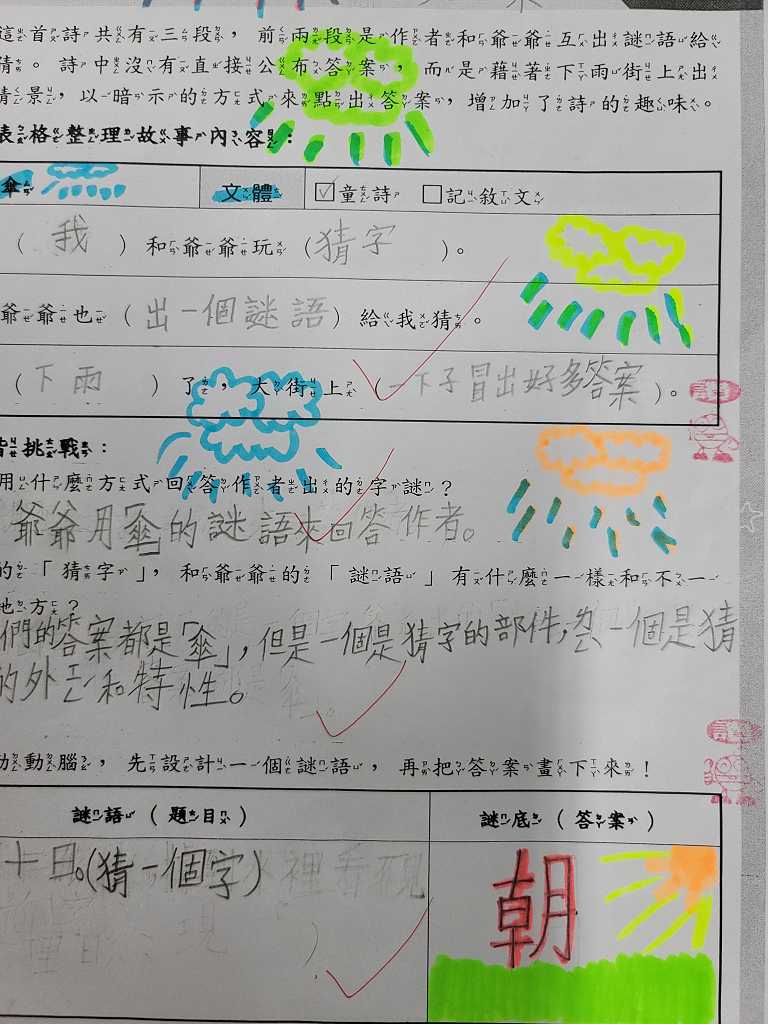 這首詩共有三段，前兩段是作者和爺爺互出謎語給
猜。詩中沒有直接公布答案，而是藉著下雨街上出
情景，以暗示的方式來點出答案，增加了詩的趣味。
表格整理故事內容：
傘 文體 ☑童詩 □記敘文
（我）和爺爺玩（猜字）。
爺爺也（出一個謎語）給我猜。
（下雨）了，大街上（一下子冒出好多答案）。
挑戰：
用什麼方式回答作者出的字謎？
爺爺用「傘」的謎語來回答作者。
的「猜字」，和爺爺的「謎語」有什麼一樣和不一
地方？
們的答案都是「傘」，但是一個是猜字的部件，ㄌㄧㄥˋ一個是猜
的外ㄒㄧㄥˊ和特性。
動動腦，先設計一個謎語，再把答案畫下來！
謎語（題目） 謎底（答案）
十日。(猜一個字) 朝